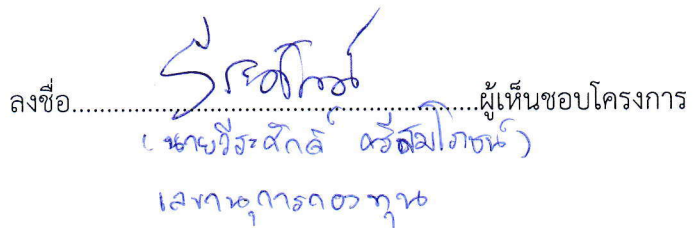 ลงชื่อ........................................................ผู้เห็นชอบโครงการ
(นายวีระศักดิ์ ศรีสมโภชน์)
เลขานุการกองทุน